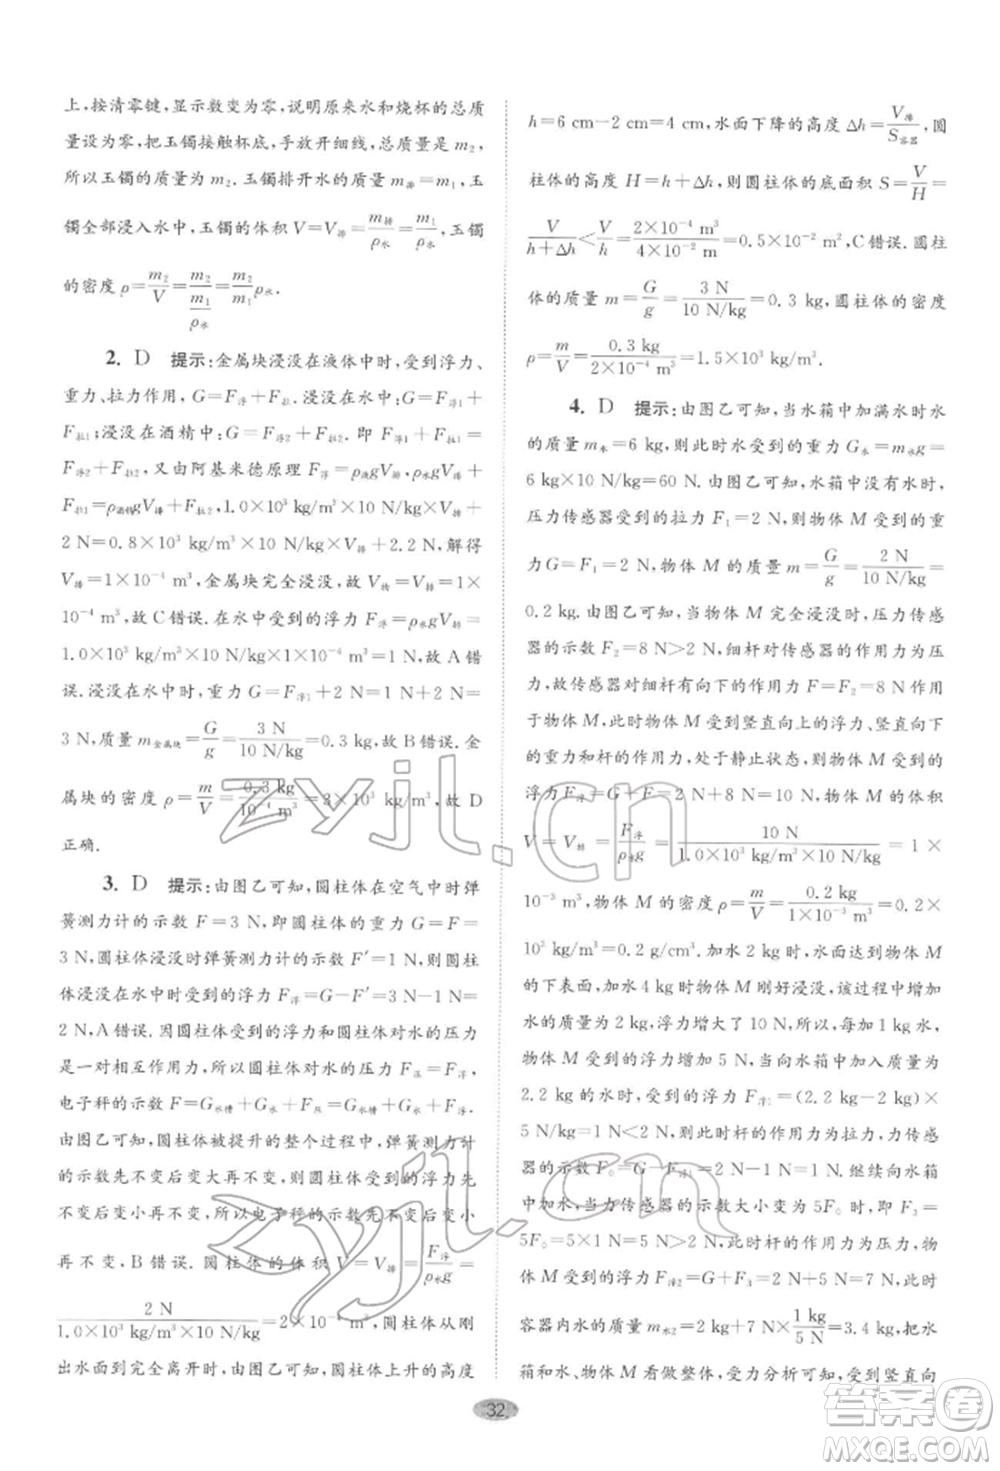 上,按清零键,显示数变为零,说明原来水和烧杯的总质
量设为零.玉镯接触杯底,手放开细线,总质量是 m₂,
所以玉镯的质量为 m₂.玉镯排开水的质量 m排=m₁,玉
镯全部浸入水中,玉镯的体积 V=V排=m排/ρ水=m₁/ρ水,玉镯
的密度 ρ=m₂/V=m₂/(m₁/ρ水)=m₂/m₁ρ水.
2. D 提示:金属块浸没在液体中时,受到浮力、
重力、拉力作用,G=F浮+F拉.浸没在水中时:G=F浮1+
F拉1;浸没在酒精中:G=F浮2+F拉2.即 F浮1+F拉1=
F浮2+F拉2,又由阿基米德原理 F浮=ρ液gV排,ρ水gV排+
F拉1=ρ酒精gV排+F拉2,1.0×10³ kg/m³×10 N/kg×V排+
2 N=0.8×10³ kg/m³×10 N/kg×V排+2.2 N,解得
V排=1×10⁻⁴ m³,金属块完全浸没,故 V物=V排=1×
10⁻⁴ m³,故 C 错误.在水中时受到的浮力 F浮=ρ水gV排=
1.0×10³ kg/m³×10 N/kg×1×10⁻⁴ m³=1 N,故 A 错
误.浸没在水中时,受到的重力 G=F浮1+2 N=1 N+2 N=
3 N,质量 m金属块=G/g=3 N/10 N/kg=0.3 kg,故 B 错误.金
属块的密度 ρ=m/V=0.3 kg/10⁻⁴ m³=3×10³ kg/m³,故 D
正确.
3. D 提示:由图乙可知,圆柱体在空气中时弹
簧测力计的示数 F=3 N,即圆柱体的重力 G=F=
3 N,圆柱体浸没时弹簧测力计的示数 F′=1 N,则圆柱
体浸没在水中时受到的浮力 F浮=G-F′=3 N-1 N=
2 N,A 错误.因圆柱体受到的浮力和圆柱体对水的压力
是一对相互作用力,所以圆柱体对水的压力 F压=F浮,
电子秤的示数=G水槽+G水+F压=G水槽+G水+F浮.
由图乙可知,圆柱体被提升的整个过程中,弹簧测力计
的示数先不变后变大再不变,则圆柱体受到的浮力先
不变后变小再不变,所以电子秤的示数先不变后变小
再不变,B 错误.圆柱体的体积 V=V排=F浮/ρ水g=
2 N/1.0×10³ kg/m³×10 N/kg=2×10⁻⁴ m³,圆柱体从刚
出水面到完全离开时,由图乙可知,圆柱体上升的高度
h=6 cm-2 cm=4 cm,水面下降的高度 Δh=V排/S容器,圆
柱体的高度 H=h+Δh,则圆柱体的底面积 S=V/H=
V/(h+Δh)<V/h=2×10⁻⁴ m³/4×10⁻² m=0.5×10⁻² m²,C 错误.圆柱
体的质量 m=G/g=3 N/10 N/kg=0.3 kg,圆柱体的密度
ρ=m/V=0.3 kg/2×10⁻⁴ m³=1.5×10³ kg/m³.
4. D 提示:由图乙可知,当水箱中加满水时水
的质量 m水=6 kg,此时水受到的重力 G水=m水g=
6 kg×10 N/kg=60 N.由图乙可知,水箱中没有水时,
压力传感器受到的拉力 F₁=2 N,则物体 M 受到的重
力 G=F₁=2 N,物体 M 的质量 m=G/g=2 N/10 N/kg=
0.2 kg.由图乙可知,当物体 M 完全浸没时,压力传感
器的示数 F₂=8 N>2 N,细杆对传感器的作用力向
上,故传感器对细杆有向下的压力 F=F₂=8 N 作用
于物体 M,此时物体 M 受到竖直向上的浮力、竖直向下
的重力和杆的作用力,处于静止状态.则物体 M 受到的
浮力 F浮=G+F=2 N+8 N=10 N,物体 M 的体积
V=V排=F浮/ρ水g=10 N/1.0×10³ kg/m³×10 N/kg=1×
10⁻³ m³,物体 M 的密度 ρ=m/V=0.2 kg/1×10⁻³ m³=0.2×
10³ kg/m³=0.2 g/cm³.加水 2 kg 时,水面达到物体 M
的下表面,加水 4 kg 时物体 M 刚好浸没,该过程中加
水的质量为 2 kg,浮力增大了 10 N,所以,每加 1 kg 水,
物体 M 受到的浮力增大 5 N.当向水箱中加入质量为
2.2 kg 的水时,受到的浮力 F浮1=(2.2 kg-2 kg)×
5 N/kg=1 N<2 N,此时杆的作用力为拉力,力传感
器的示数 F₀=G-F浮1=2 N-1 N=1 N.继续向水箱
中加水,当力传感器的示数大小变为 5F₀ 时,即 F=
5F₀=5×1 N=5 N>2 N,此时杆的作用力为压力,物
体 M 受到的浮力 F浮2=G+F=2 N+5 N=7 N,此时
容器内水的质量 m水2=2 kg+7 N×1 kg/5 N=3.4 kg,把水
箱和水、物体 M 看做整体,受力分析可知,受到竖直向
32
zyjl.cn
zyjl.cn
答案圈
MXQE.COM